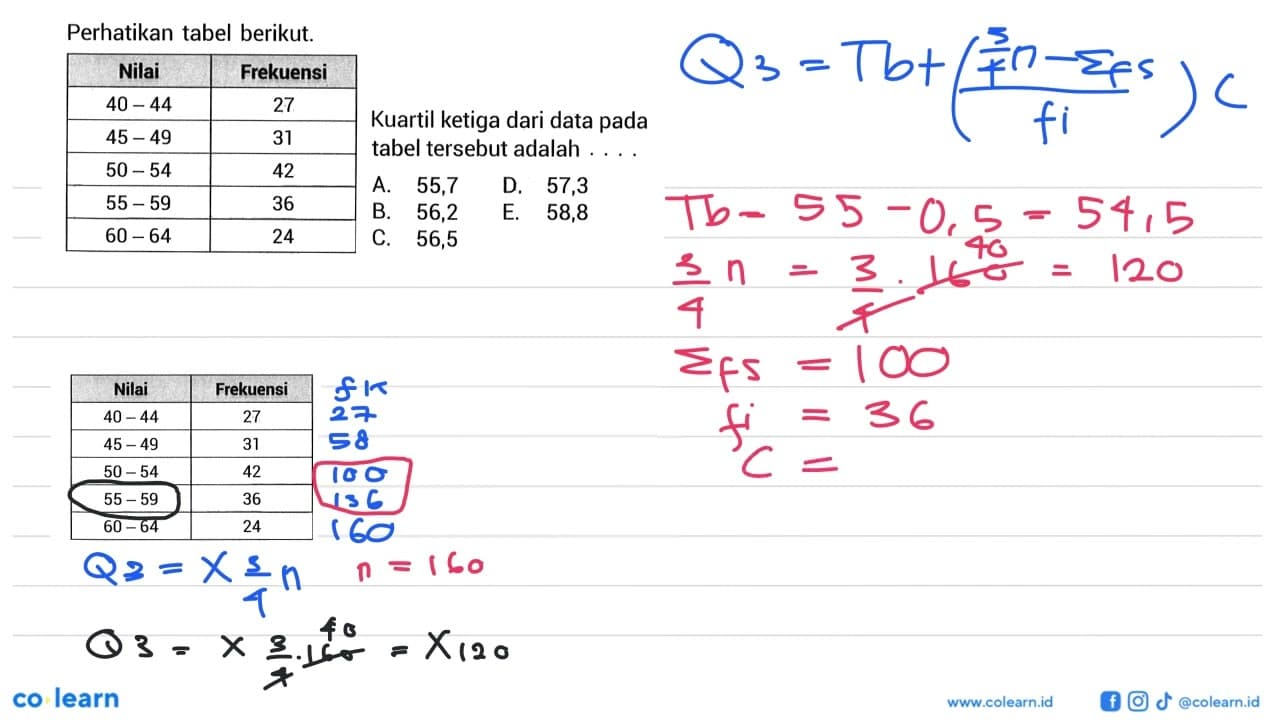 Perhatikan tabel berikut.
Nilai Frekuensi
40 – 44 27
45 – 49 31
50 – 54 42
55 – 59 36
60 – 64 24
Kuartil ketiga dari data pada
tabel tersebut adalah . . . .
A. 55,7 D. 57,3
B. 56,2 E. 58,8
C. 56,5
Q3 = Tb + ( (3/4 n - Σfs) / fi ) C
Tb - 55 - 0,5 = 54,5
3/4 n = 3/4 . 160 40 = 120
Σfs = 100
fi = 36
C =
Nilai Frekuensi fk
40 – 44 27 27
45 – 49 31 58
50 – 54 42 100
55 – 59 36 136
60 – 64 24 160
Q3 = X 3/4 n n = 160
Q3 = X 3/4 . 160 40 = X120
co learn
www.colearn.id @colearn.id